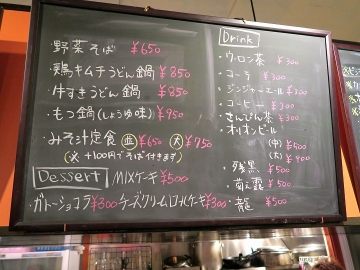 ・野菜そば ¥650
・鶏キムチうどん鍋 ¥850
・牛すきうどん鍋 ¥850
・もつ鍋(しょうゆ味) ¥950
・みそ汁定食 (並) ¥650 (大) ¥750
(※ +100円でそば付きます)
Dessert MIXケーキ ¥500
・ガトーショコラ ¥300 チーズクリームロールケーキ ¥300
Drink
・ウーロン茶 ¥300
・コーラ ¥300
・ジンジャーエール ¥300
・コーヒー ¥300
・さんぴん茶 ¥300
・オリオンビール
(中) ¥500
(大) ¥900
・残黒 ¥500
・菊之露 ¥500
・龍 ¥500